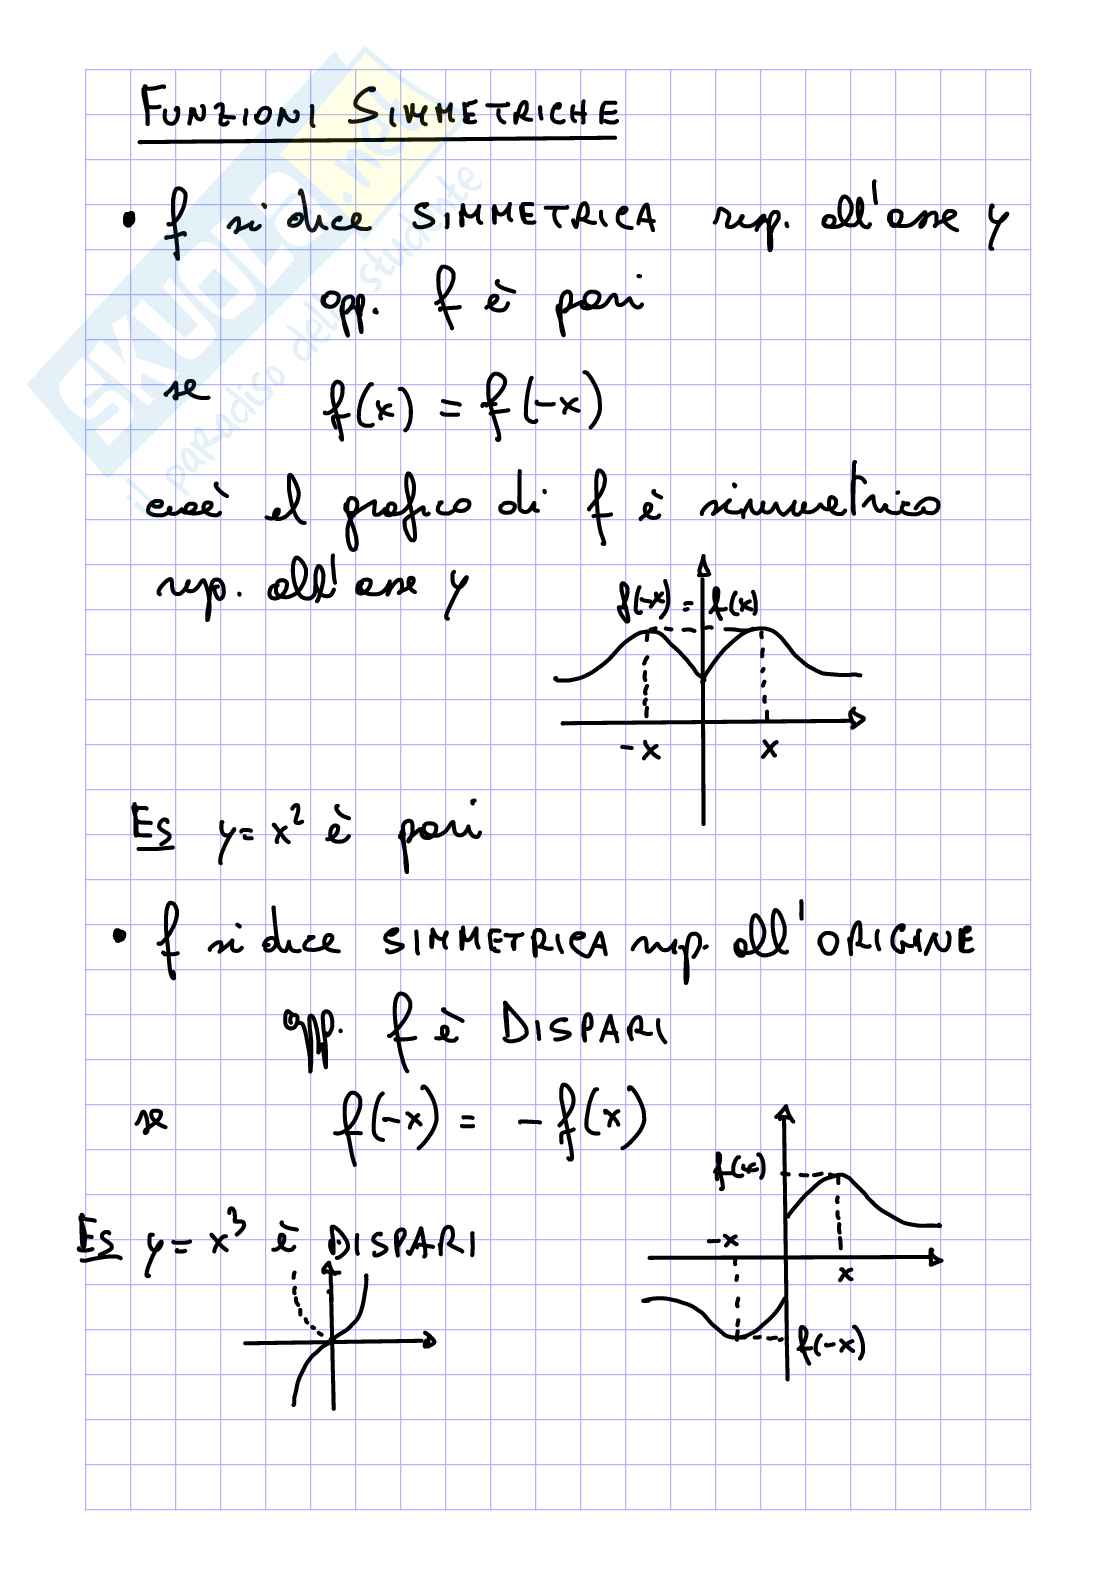 FUNZIONI SIMMETRICHE
• f si dice SIMMETRICA risp. all'asse y
opp. f è pari
se f(x) = f(-x)
cioè il grafico di f è simmetrico
risp. all'asse y
f(-x) = f(x)
-x x
Es y = x² è pari
• f si dice SIMMETRICA risp. all'ORIGINE
opp. f è DISPARI
se f(-x) = -f(x)
f(x)
-x
x
f(-x)
Es y = x³ è DISPARI
SKUOLA.net
il paradiso dello studente